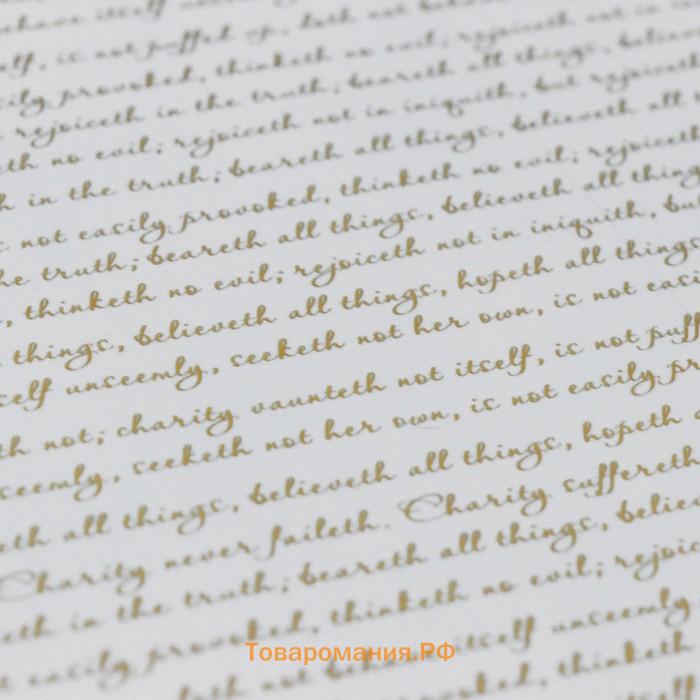 itself
is not puffed up, doth not
provoked, thinketh no evil; rejoiceth not in
rejoiceth in the truth; beareth all things,
th no evil; rejoiceth not in iniquith, but rejoiceth
h in the truth; beareth all things, believeth all
not easily provoked, thinketh no evil; rejoiceth
he truth; beareth all things, believeth all thing
, thinketh no evil; rejoiceth not in iniquith, bu
things, believeth all things, hopeth all things
self unseemly, seeketh not her own, is not easi
th not; charity vaunteth not itself, is not puff
seemly, seeketh not her own, is not easily pr
eth all things, believeth all things, hopeth
Charity never faileth. Charity suffereth
eth in the truth; beareth all things, belie
t easily provoked, thinketh no evil; rejoic
doth not behave itself unseemly
provoked, thinketh
Товаромания.РФ